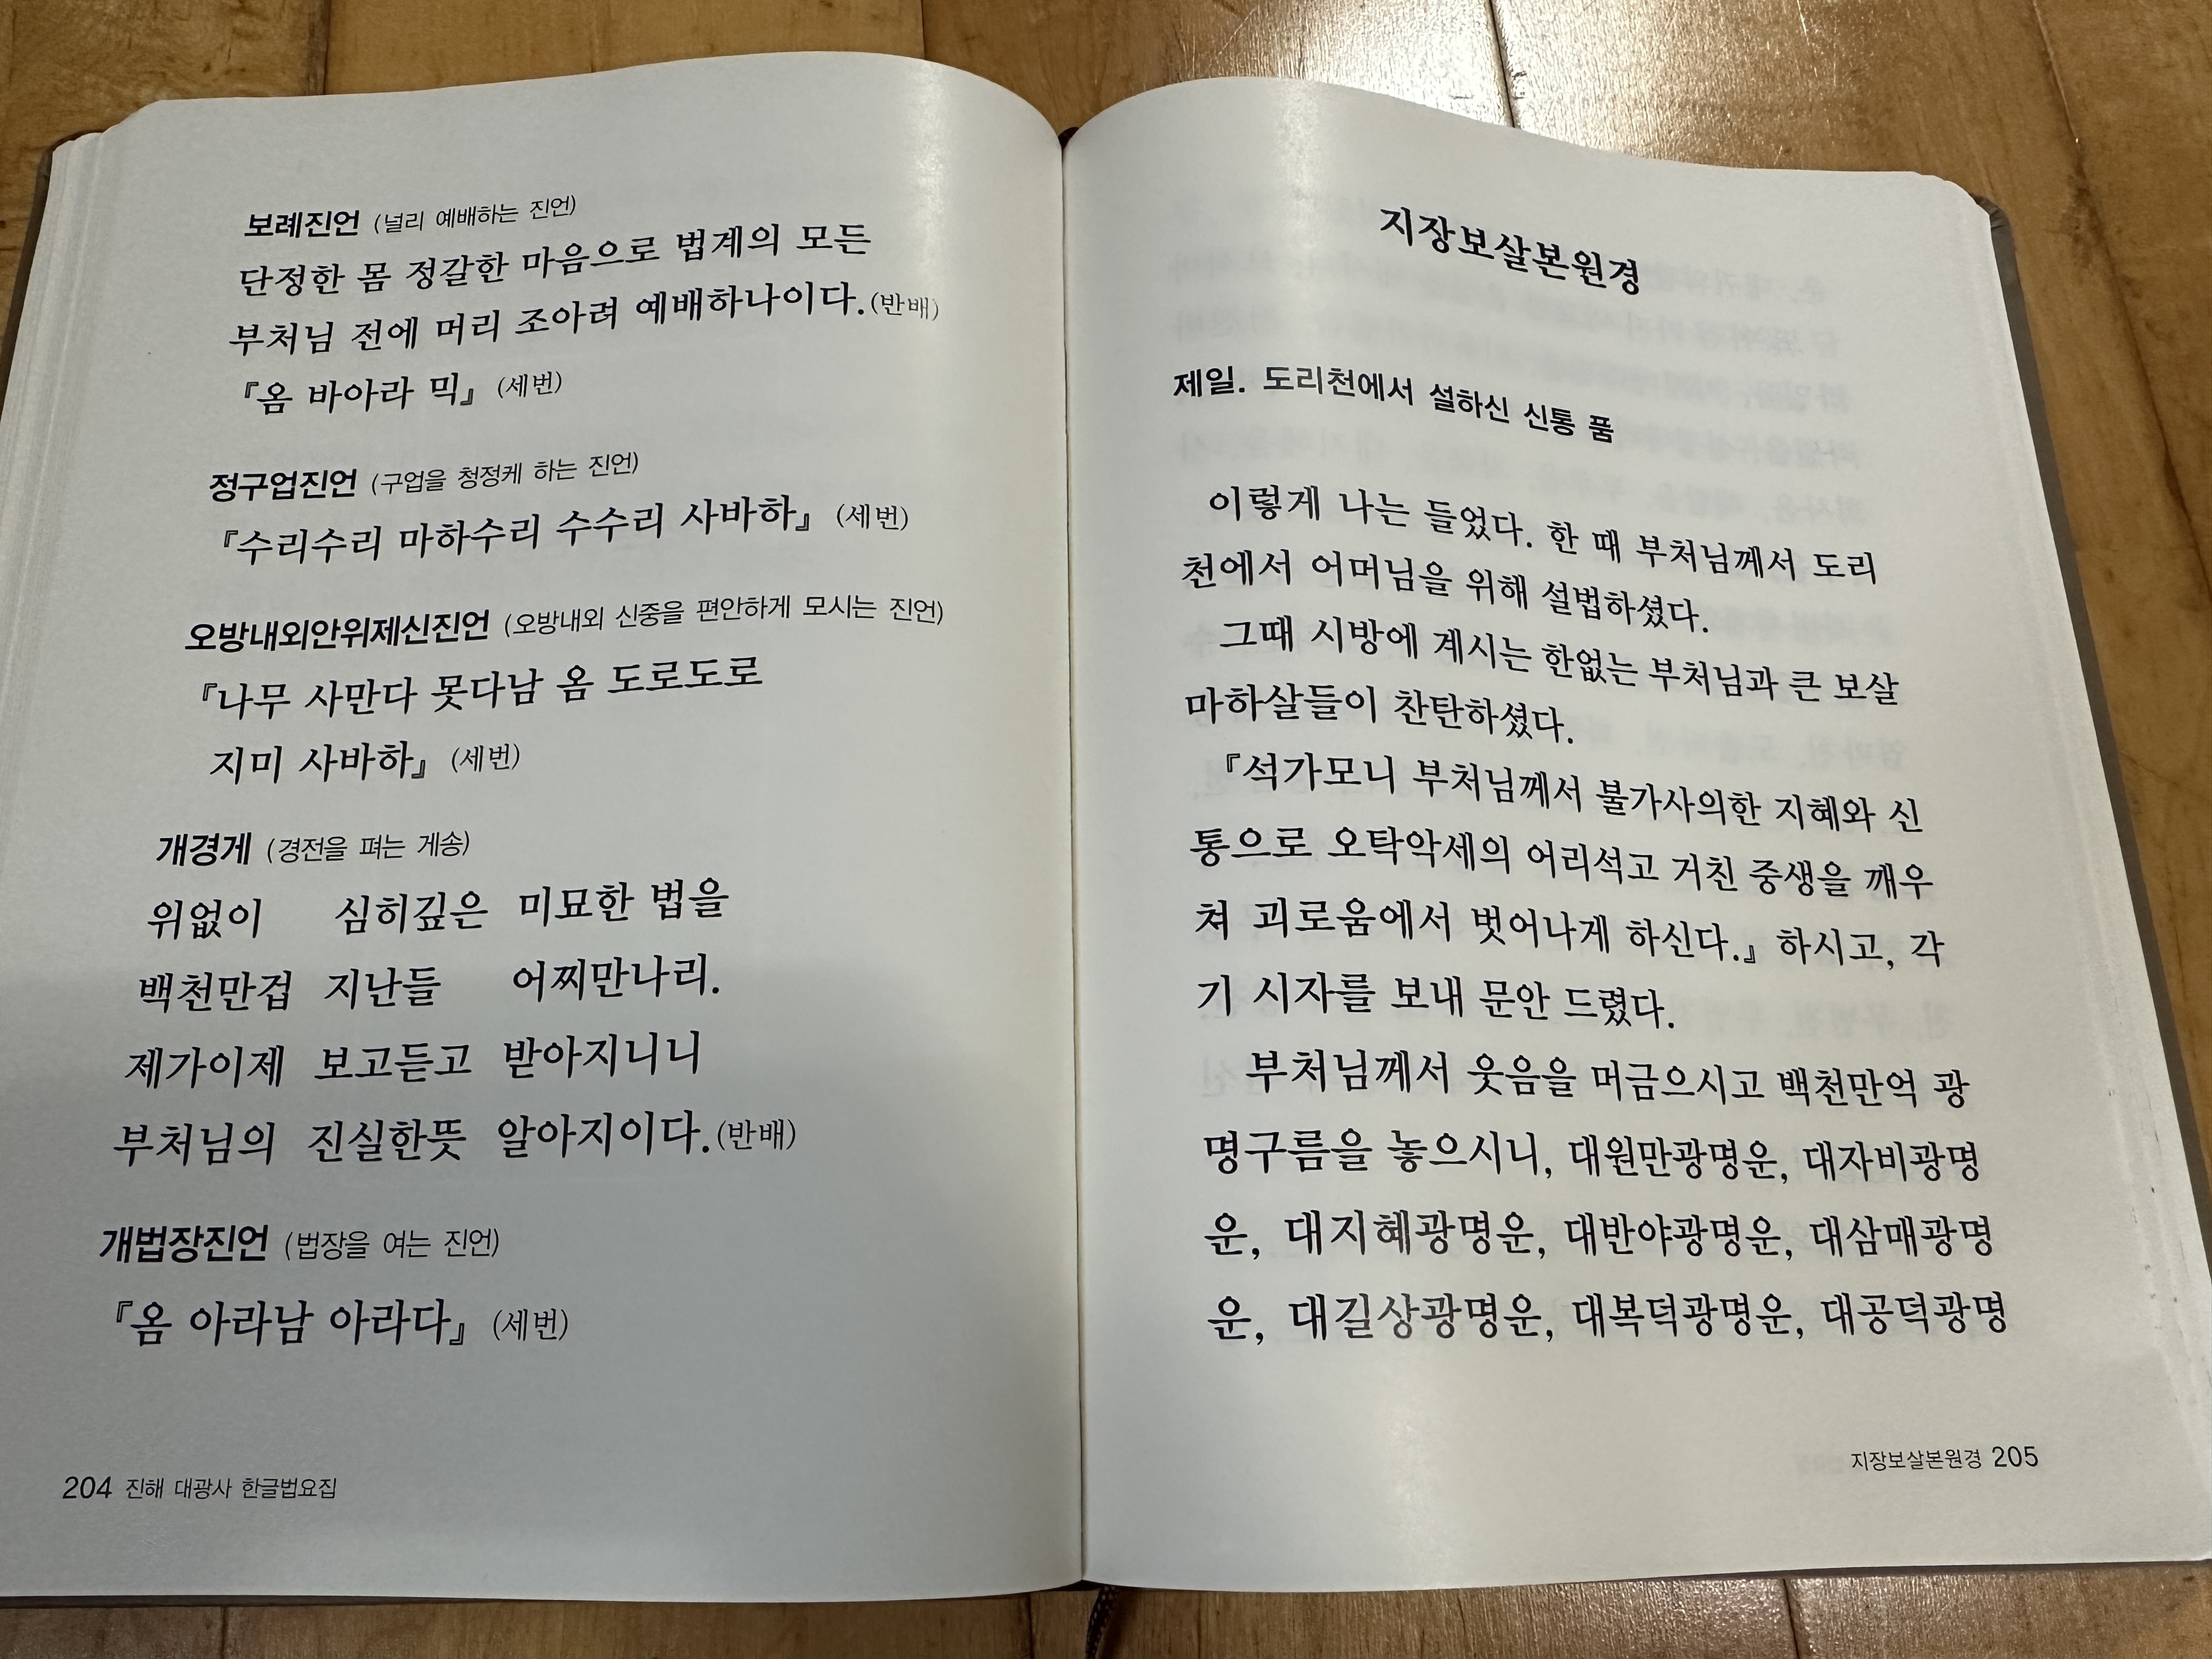 보례진언 (널리 예배하는 진언)
단정한 몸 정갈한 마음으로 법계의 모든
부처님 전에 머리 조아려 예배하나이다.(반배)
『옴 바아라 믹』 (세번)
정구업진언 (구업을 청정케 하는 진언)
『수리수리 마하수리 수수리 사바하』 (세번)
오방내외안위제신진언 (오방내외 신중을 편안하게 모시는 진언)
『나무 사만다 못다남 옴 도로도로
지미 사바하』 (세번)
개경게 (경전을 펴는 게송)
위없이 심히깊은 미묘한 법을
백천만겁 지난들 어찌만나리.
제가이제 보고듣고 받아지니니
부처님의 진실한뜻 알아지이다.(반배)
개법장진언 (법장을 여는 진언)
『옴 아라남 아라다』 (세번)
204 진해 대광사 한글법요집
지장보살본원경
제일. 도리천에서 설하신 신통 품
이렇게 나는 들었다. 한 때 부처님께서 도리
천에서 어머님을 위해 설법하셨다.
그때 시방에 계시는 한없는 부처님과 큰 보살
마하살들이 찬탄하셨다.
『석가모니 부처님께서 불가사의한 지혜와 신
통으로 오탁악세의 어리석고 거친 중생을 깨우
쳐 괴로움에서 벗어나게 하신다.』 하시고, 각
기 시자를 보내 문안 드렸다.
부처님께서 웃음을 머금으시고 백천만억 광
명구름을 놓으시니, 대원만광명운, 대자비광명
운, 대지혜광명운, 대반야광명운, 대삼매광명
운, 대길상광명운, 대복덕광명운, 대공덕광명
지장보살본원경 205